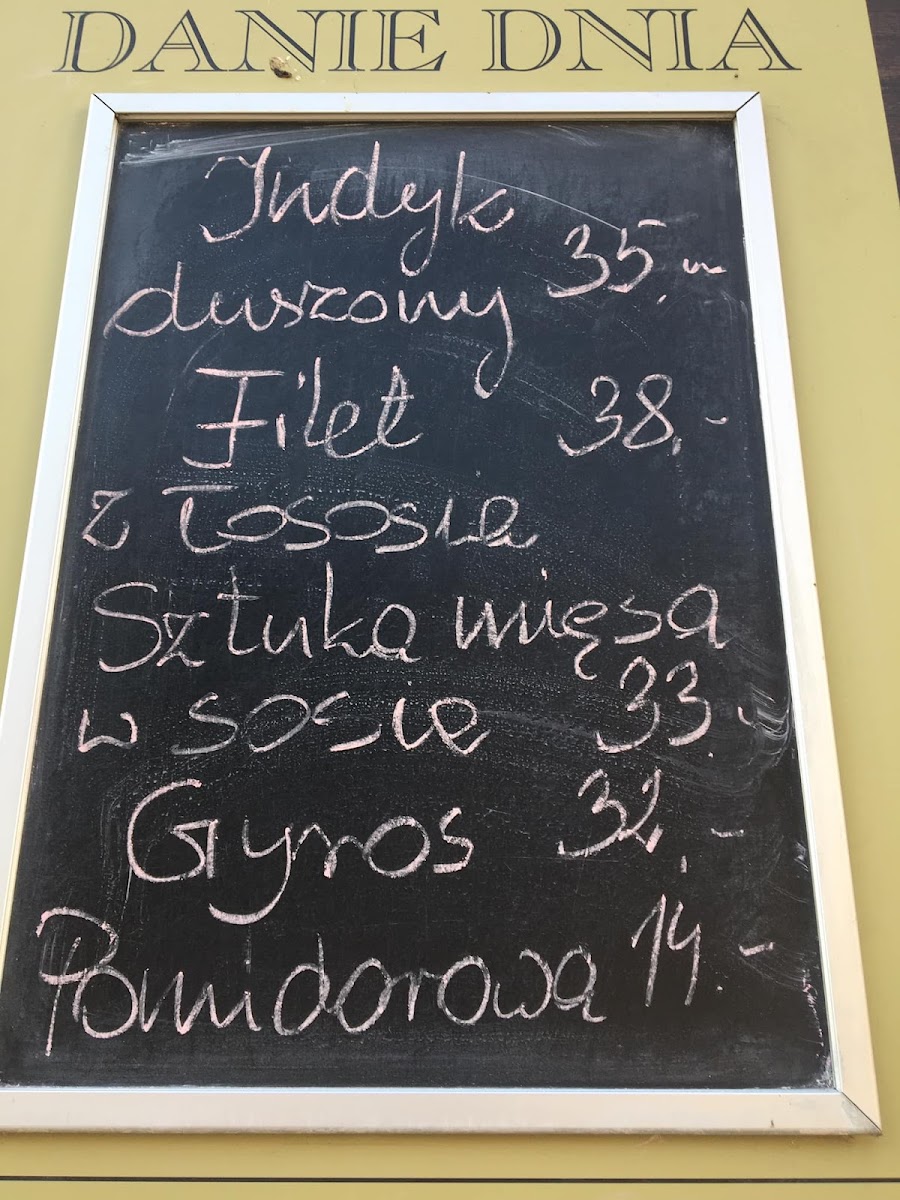 DANIE DNIA
Indyk
duszony 35,-
Filet 38,-
z Łososia
Sztuka mięsa
w sosie 33.-
Gyros 32,-
Pomidorowa 14.-